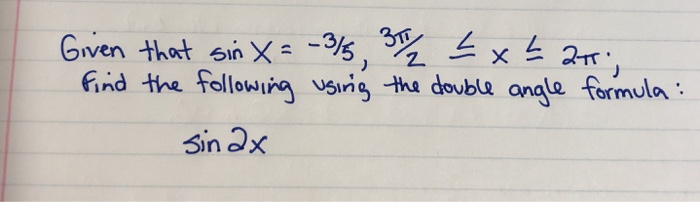 Given that sin x = -3/5, 3π/2 ≤ x ≤ 2π;
find the following using the double angle formula:
sin 2x